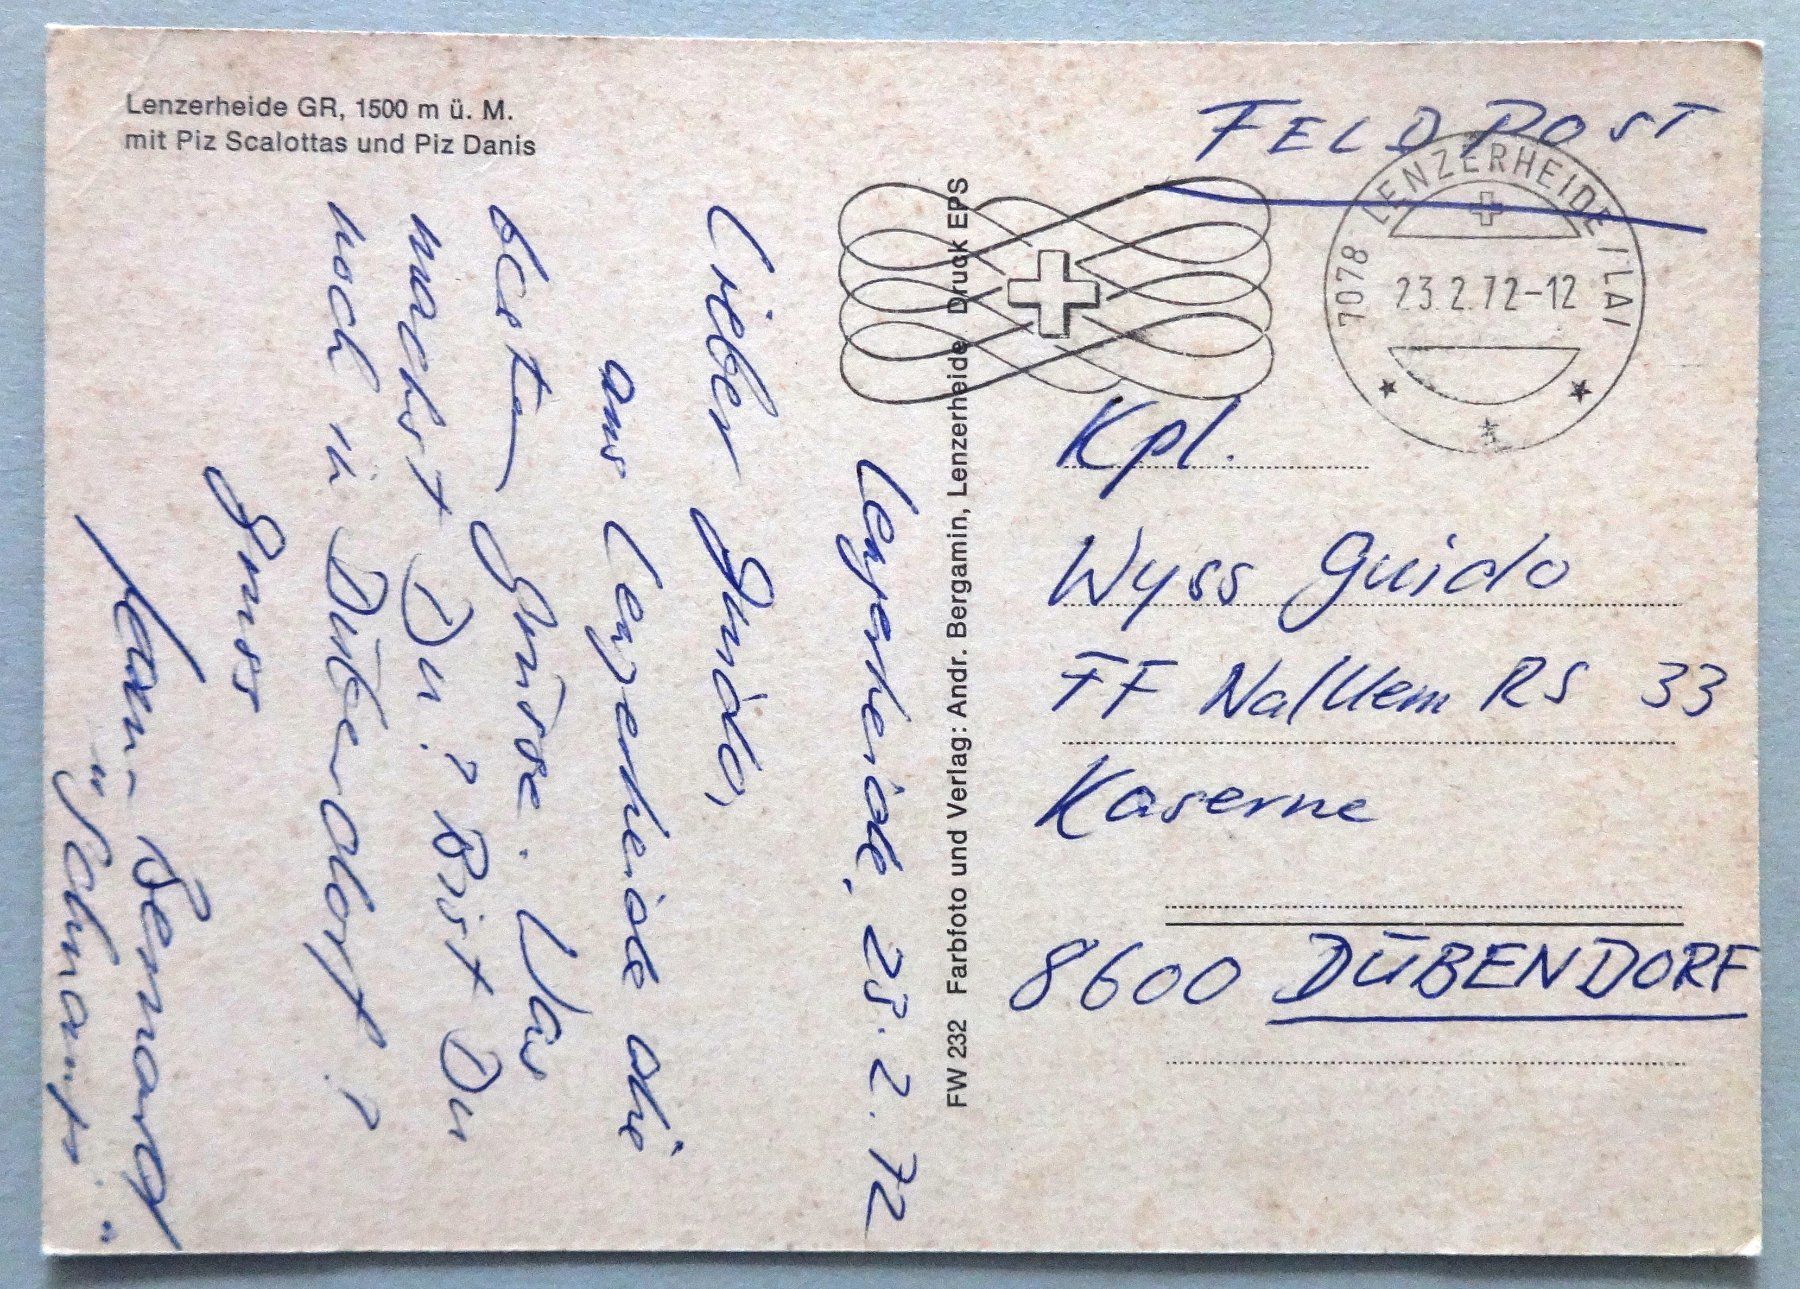 Lenzerheide GR, 1500 m ü. M.
mit Piz Scalottas und Piz Danis
FELDPOST
7078 LENZERHEIDE/LAI
23.2.72-12
Lenzerheide, 23. 2. 72
Lieber Guido,
aus Lenzerheide die
besten Grüsse. Was
machst Du? Bist Du
noch in Dübendorf?
Gruss
Bernard
FW 232 Farbfoto und Verlag: Andr. Bergamin, Lenzerheide Druck EPS
Kpl.
Wyss Guido
FF Na/Uem RS 33
Kaserne
8600 DÜBENDORF